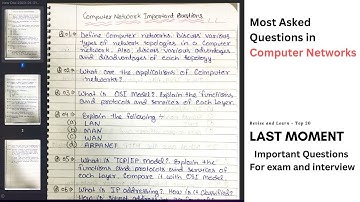 Computer Network Important Questions
Q 01 Define Computer networks. Discuss various
types of network topologies in a Computer
network. Also discuss various advantages
and disadvantages of each topology.
Q 02 What are the applications of Computer
networks?
Q 03 What is OSI Model? Explain the functions
and protocols and services of each layer.
Q 04 Explain the following
(a) LAN
(b) MAN
(c) WAN
(d) ARPANET
Q 05 What is TCP/IP Model? Explain the
functions and protocols and services of
each layer. Compare it with OSI model.
Q 06 What is IP addressing? How is it classified?
Most Asked
Questions in
Computer Networks
Revise and Learn - Top 20
LAST MOMENT
Important Questions
For exam and interview